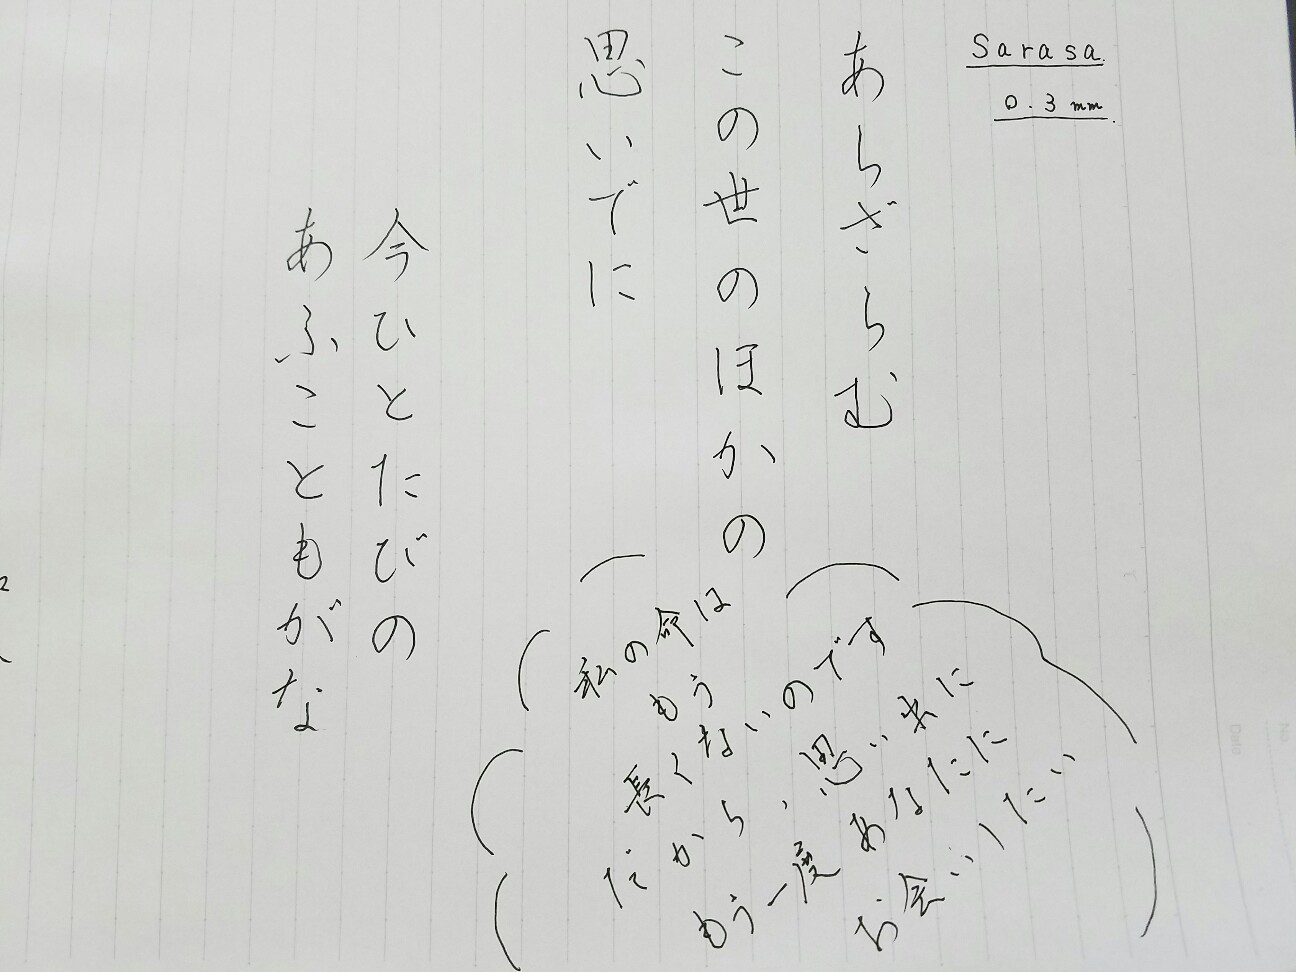 Sarasa.
0.3mm.
あらざらむ
この世のほかの
思いでに
今ひとたびの
あふこともがな
私の命は
もう
長くないのです
だから、思い出に
もう一度あなたに
お会いしたい